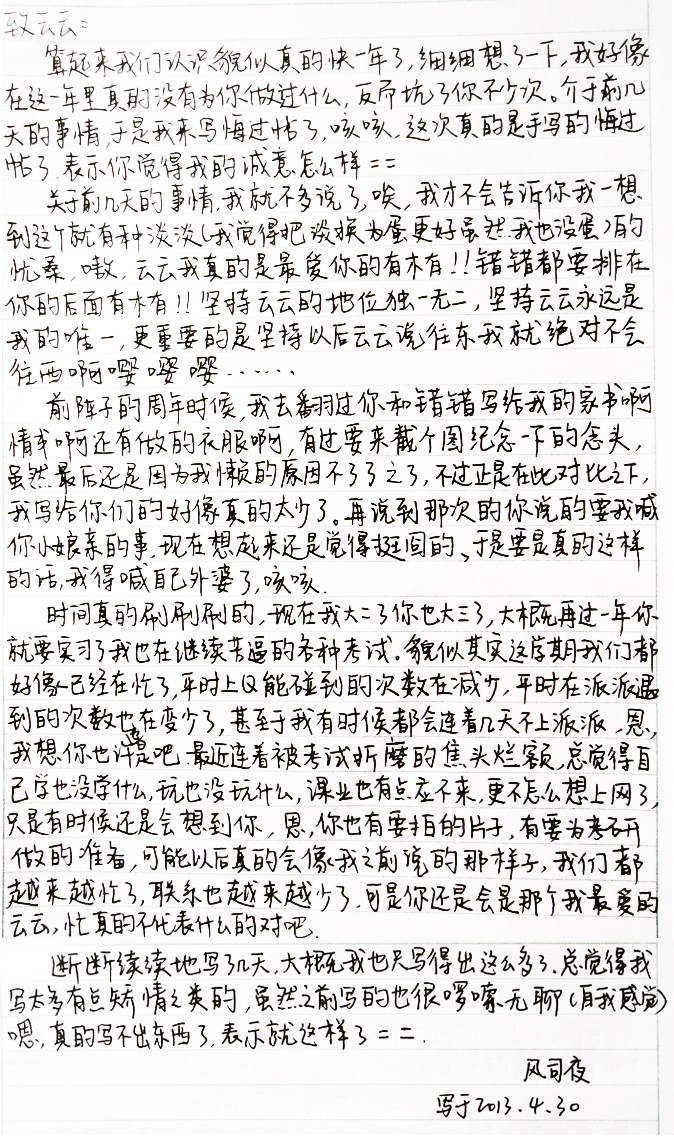 致云云:
算起来我们认识貌似真的快一年了,细细想了一下,我好像
在这一年里真的没有为你做过什么,反而坑了你不少次。介于前几
天的事情,于是我来写悔过帖了,咳咳,这次真的是手写的悔过
帖了,表示你觉得我的诚意怎么样==
关于前几天的事情,我就不多说了,唉,我才不会告诉你我一想
到这个就有种淡淡(我觉得把淡换为蛋更好虽然我也没蛋)的
忧桑,嗷,云云我真的是最爱你的有木有!!错错都要排在
你的后面有木有!!坚持云云的地位独一无二,坚持云云永远是
我的唯一,更重要的是坚持以后云云说往东我就绝对不会
往西啊嘤嘤嘤……
前阵子的周年时候,我去翻过你和错错写给我的家书啊
情书啊还有做的衣服啊,有过要来截个图纪念一下的念头,
虽然最后还是因为我懒的原因不了了之了,不过正是在此对比之下,
我写给你们的好像真的太少了。再说到那次的你说的要我喊
你小娘亲的事,现在想起来还是觉得挺囧的、于是要是真的这样
的话,我得喊自己外婆了,咳咳.
时间真的刷刷刷的,现在我大二了你也大三了,大概再过一年你
就要实习了我也在继续苦逼的各种考试。貌似其实这学期我们都
好像已经在忙了,平时上Q能碰到的次数在减少,平时在派派遇
到的次数也在变少了,甚至于我有时候都会连着几天不上派派,恩,
我想你也许是吧.最近连着被考试折磨的焦头烂额,总觉得自
己学也没学什么,玩也没玩什么,课业也有点应不来,更不怎么想上网了,
只是有时候还是会想到你,恩,你也有要拍的片子,有要为考研
做的准备,可能以后真的会像我之前说的那样子,我们都
越来越忙了,联系也越来越少了.可是你还是会是那个我最爱的
云云,忙真的不代表什么的对吧.
断断续续地写了几天,大概我也只写得出这么多了.总觉得我
写太多有点矫情之类的,虽然之前写的也很啰嗦无聊(自我感觉)
嗯,真的写不出东西了,表示就这样了==.
风司夜
写于2013.4.30